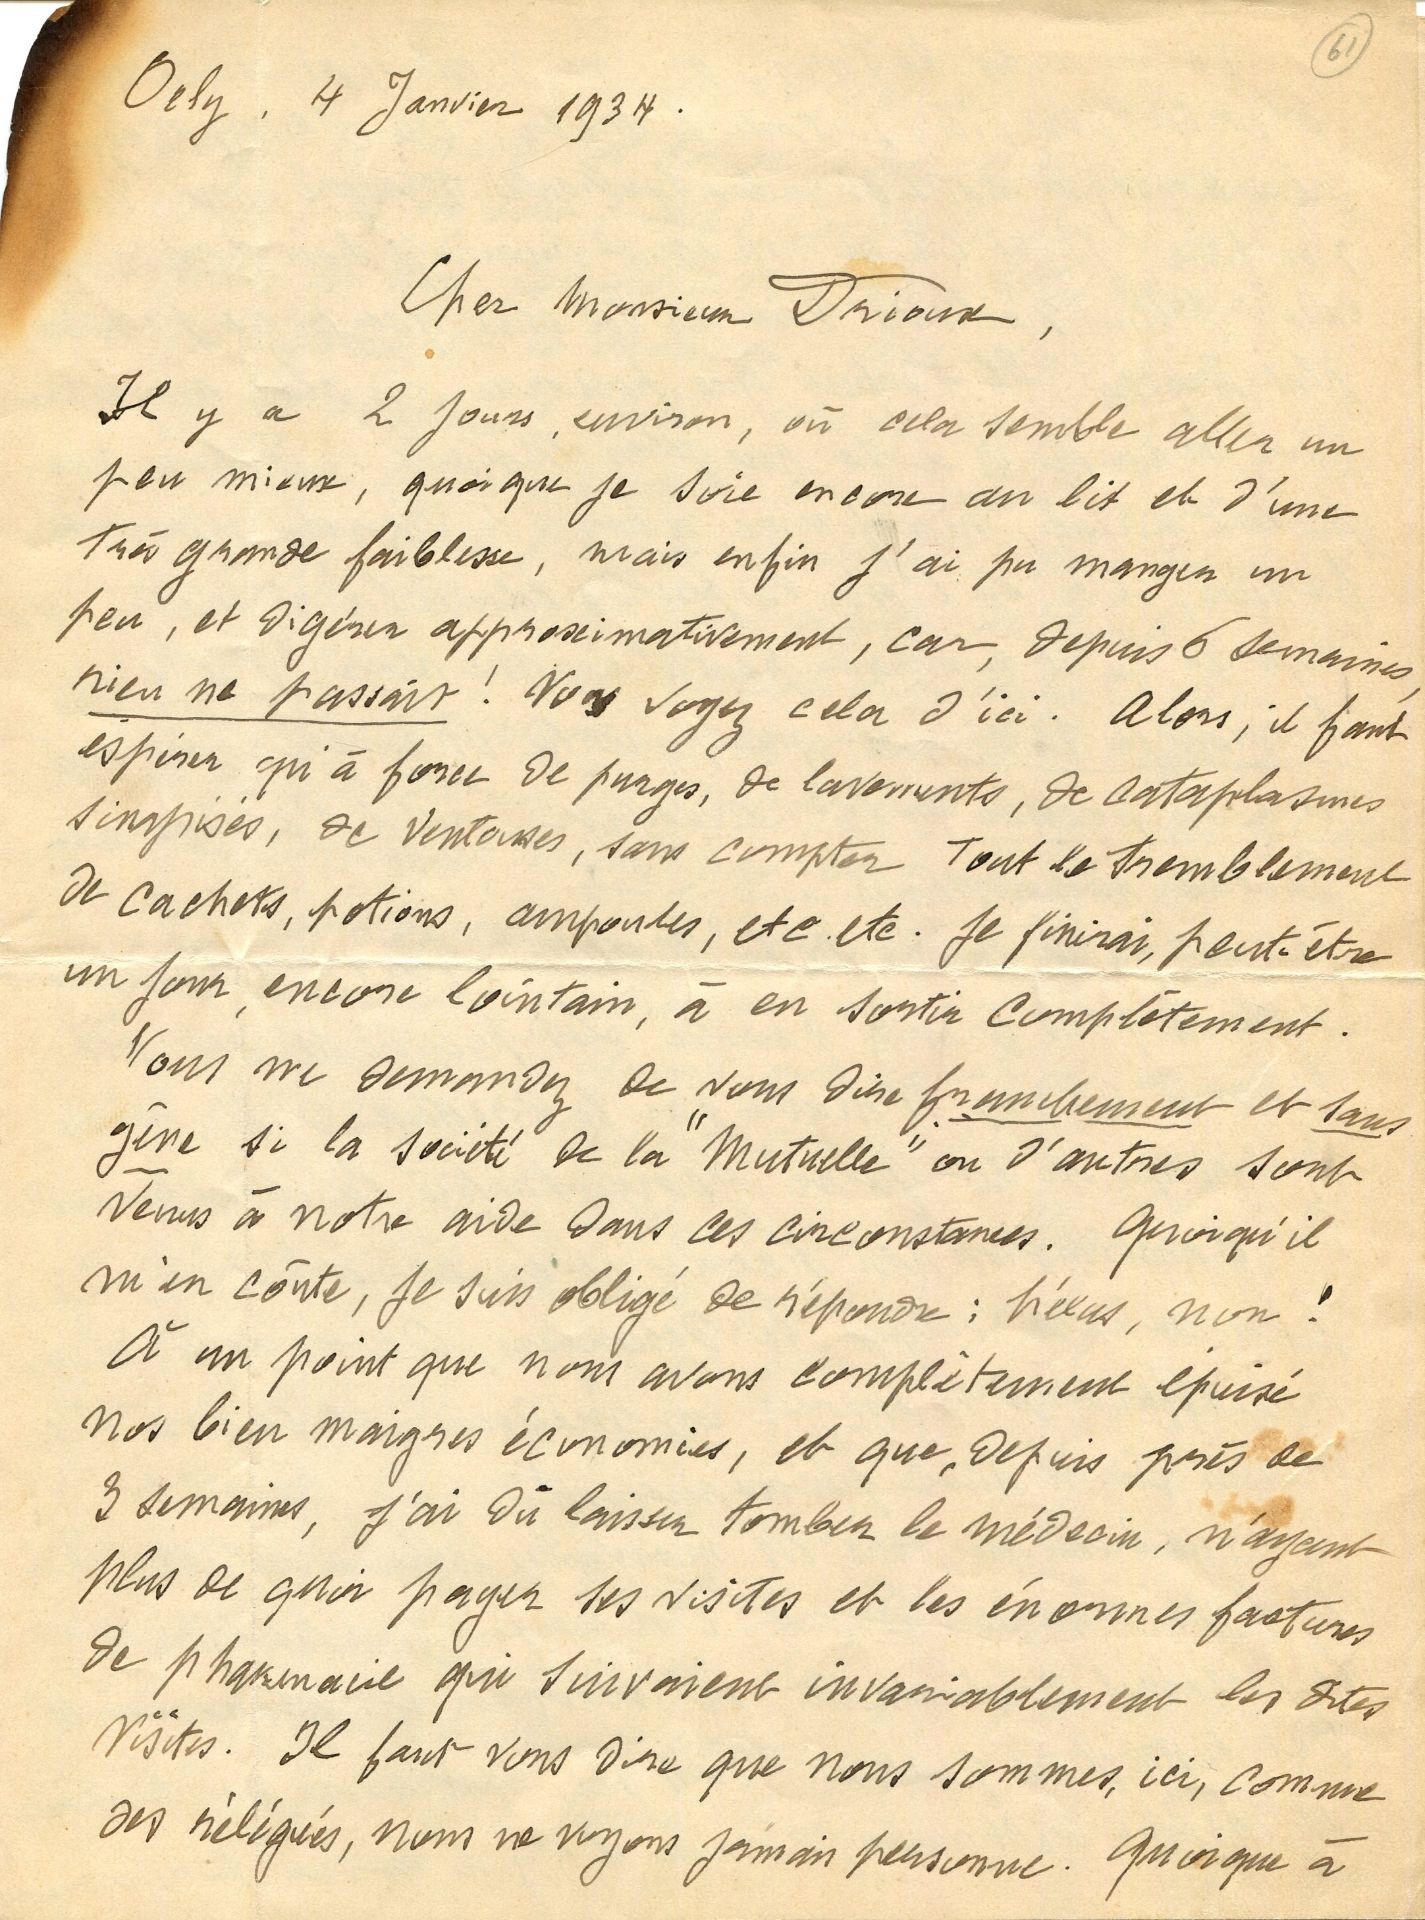 61
Oely, 4 Janvier 1934.
Cher Monsieur Drioux,
Il y a 2 jours, environ, où cela semble aller un
peu mieux, quoique je soie encore au lit et d'une
très grande faiblesse, mais enfin j'ai pu manger un
peu, et digérer approximativement, car, depuis 6 semaines,
rien ne passait ! Vous voyez cela d'ici. Alors, il faut
espérer qu'à force de purges, de lavements, de cataplasmes
sinapisés, de ventouses, sans compter tout le tremblement
de cachets, potions, ampoules, etc. etc. je finirai, peut-être
un jour, encore lointain, à en sortir complètement.
Vous me demandez de vous dire franchement et sans
gêne si la société de la "Mutuelle" ou d'autres sont
venus à notre aide dans ces circonstances. Quoiqu'il
m'en coûte, je suis obligé de répondre : hélas, non !
À un point que nous avons complètement épuisé
nos bien maigres économies, et que, depuis près de
3 semaines, j'ai dû laisser tomber le médecin, n'ayant
plus de quoi payer ses visites et les énormes factures
de pharmacie qui suivaient invariablement les dites
visites. Il faut vous dire que nous sommes, ici, comme
des rélégués, nous ne voyons jamais personne. Quoique à